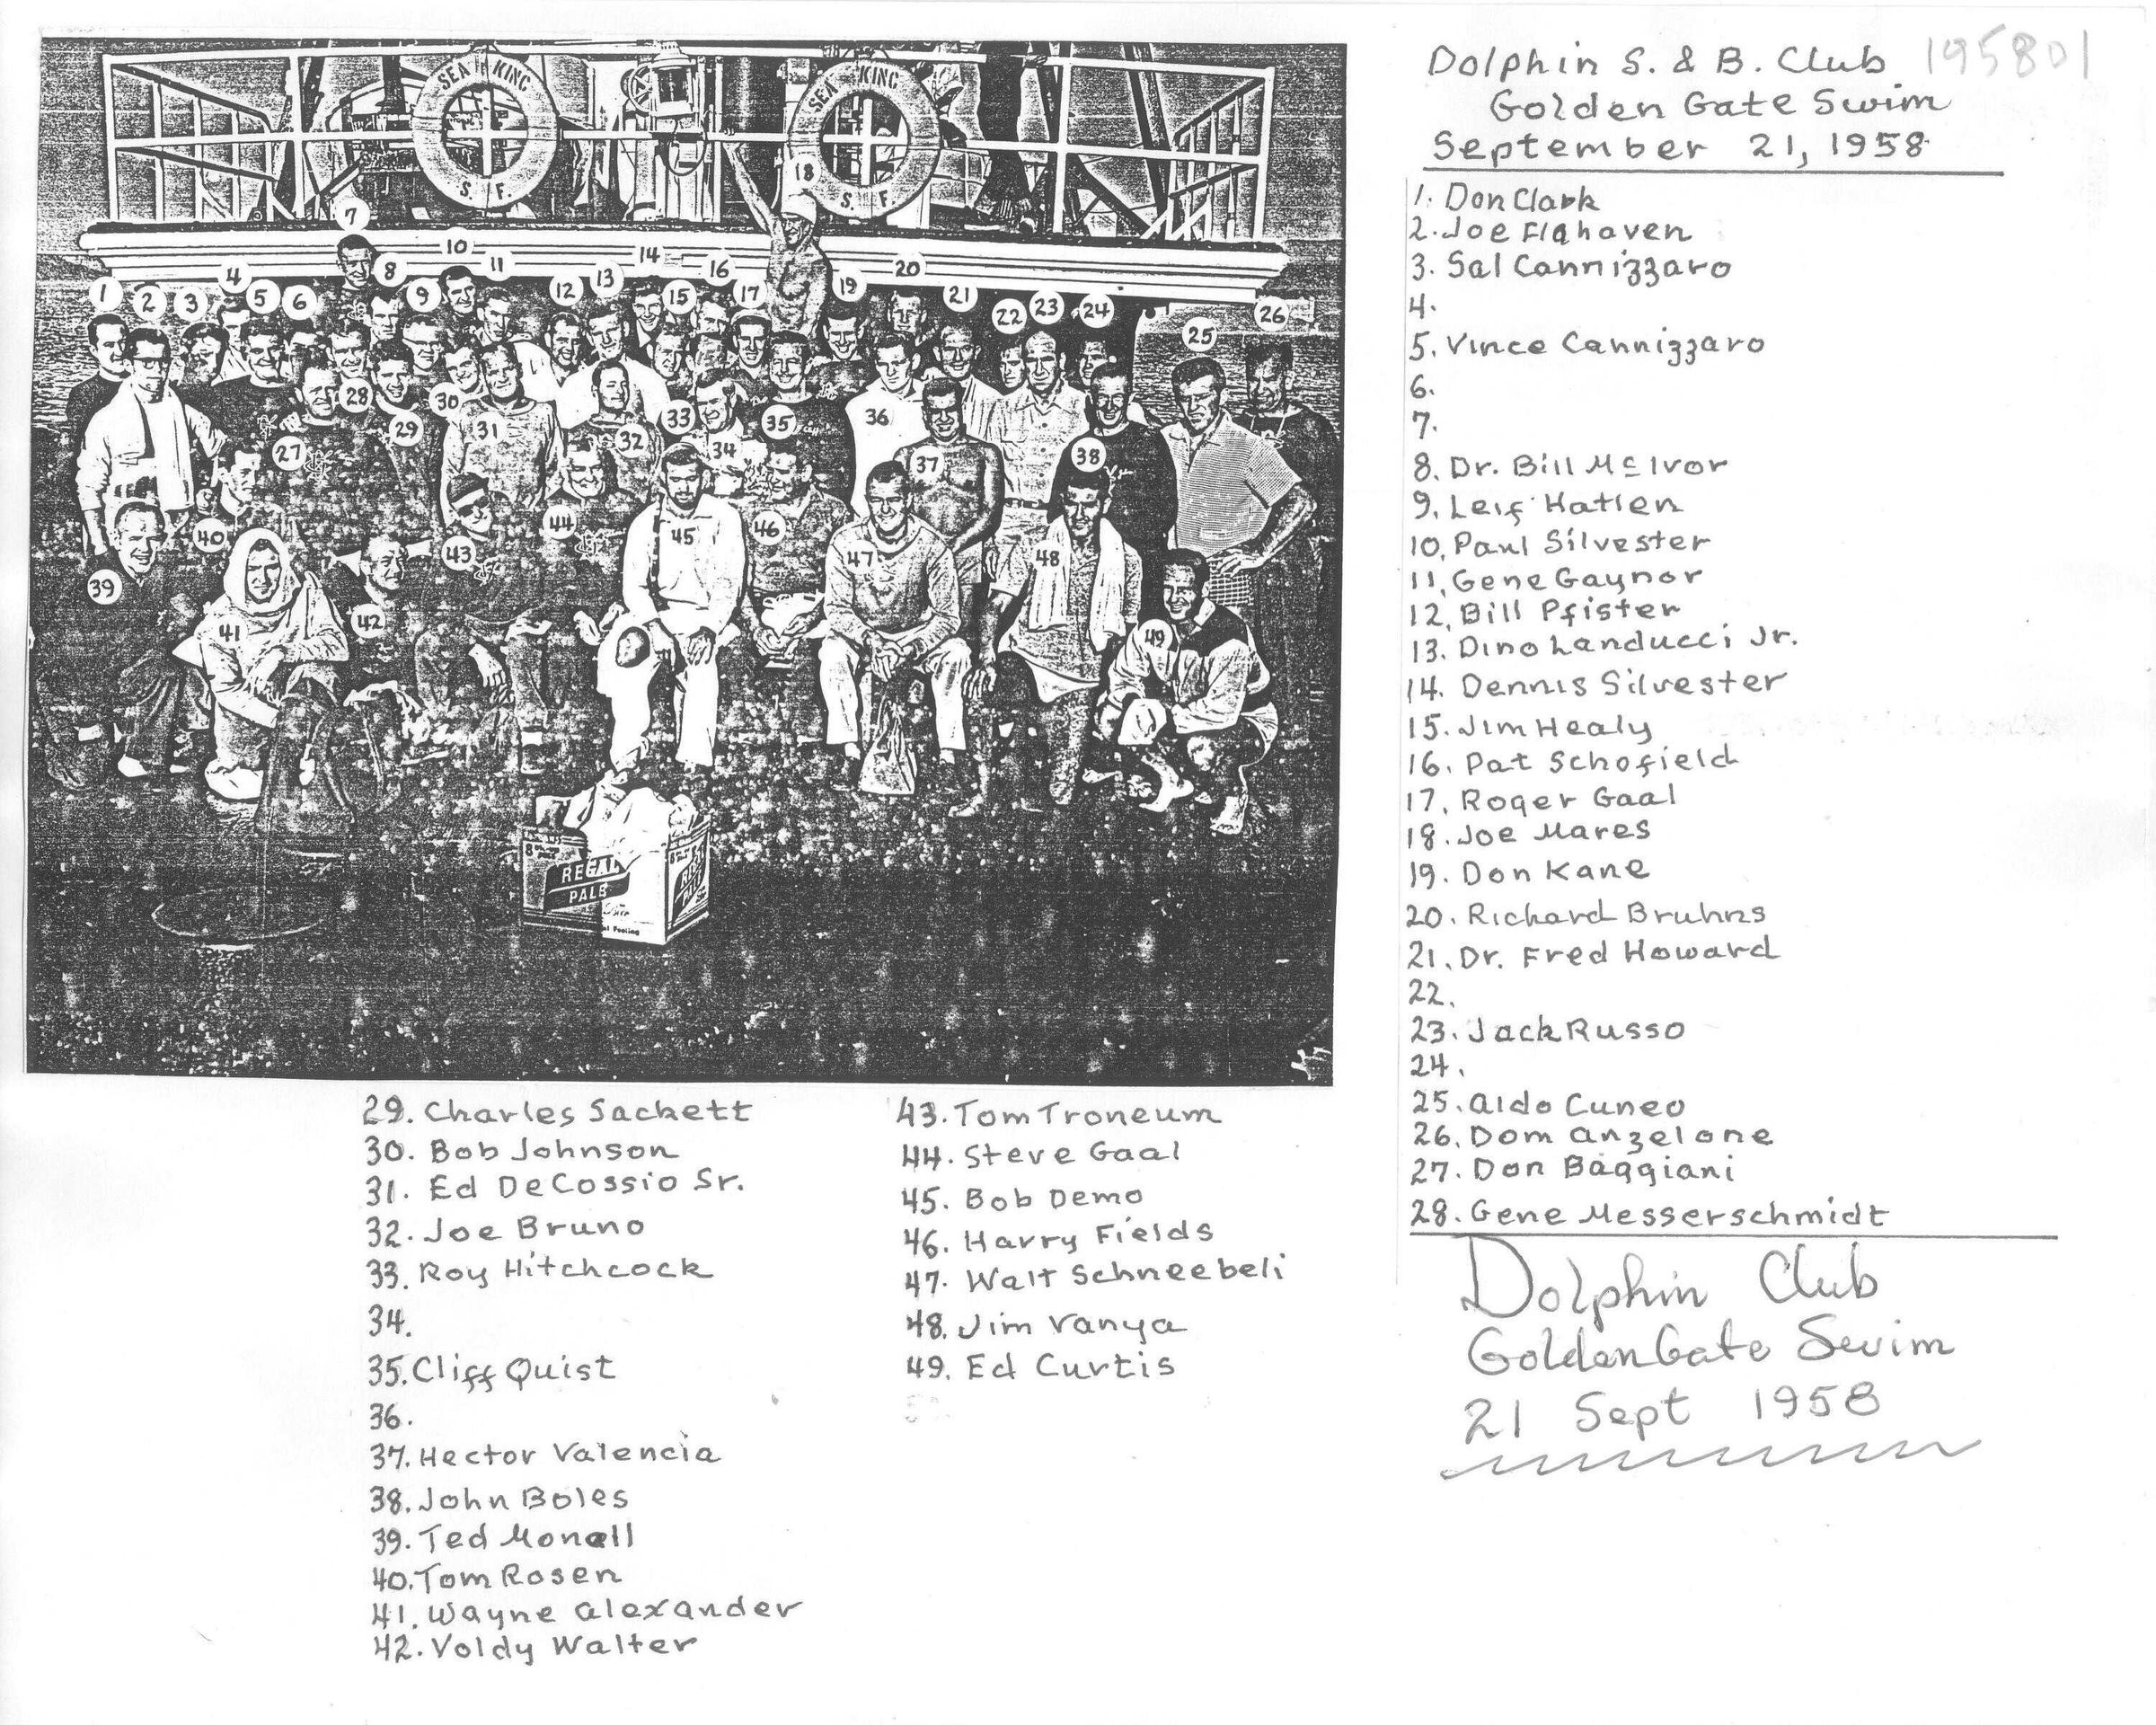 SEA KING
S. F.
SEA KING
S. F.
1
2
3
4
5
6
7
8
9
10
11
12
13
14
15
16
17
18
19
20
21
22
23
24
25
26
27
28
29
30
31
32
33
34
35
36
37
38
39
40
41
42
43
44
45
46
47
48
49
REGAL
PALE
Dolphin S. & B. Club 195801
Golden Gate Swim
September 21, 1958
1. Don Clark
2. Joe Flahaven
3. Sal Cannizzaro
4.
5. Vince Cannizzaro
6.
7.
8. Dr. Bill McIvor
9. Leif Hatlen
10. Paul Silvester
11. Gene Gaynor
12. Bill Pfister
13. Dino Landucci Jr.
14. Dennis Silvester
15. Jim Healy
16. Pat Schofield
17. Roger Gaal
18. Joe Mares
19. Don Kane
20. Richard Bruhns
21. Dr. Fred Howard
22.
23. Jack Russo
24.
25. Aldo Cuneo
26. Dom Anzelone
27. Don Baggiani
28. Gene Messerschmidt
29. Charles Sackett
30. Bob Johnson
31. Ed DeCossio Sr.
32. Joe Bruno
33. Roy Hitchcock
34.
35. Cliff Quist
36.
37. Hector Valencia
38. John Boles
39. Ted Monall
40. Tom Rosen
41. Wayne Alexander
42. Voldy Walter
43. Tom Troneum
44. Steve Gaal
45. Bob Demo
46. Harry Fields
47. Walt Schneebeli
48. Jim Vanya
49. Ed Curtis
Dolphin Club
Golden Gate Swim
21 Sept 1958